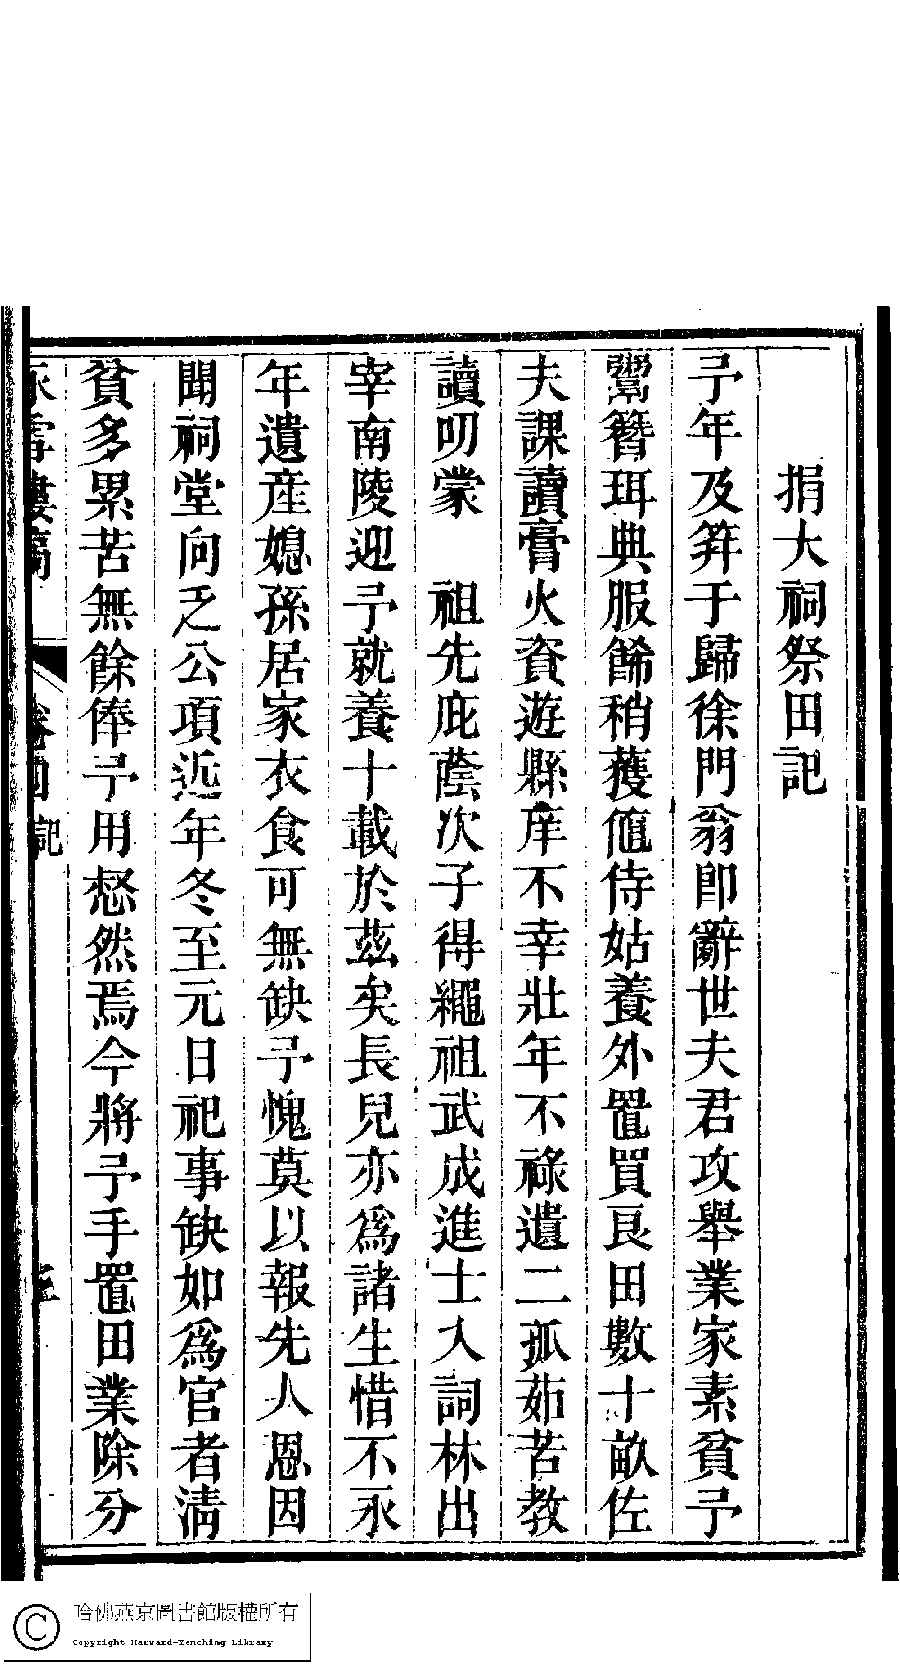 捐大祠祭田記
予年及笄于歸徐門翁卽辭世夫君攻舉業家素貧予
鬻簪珥典服飾稍獲値侍姑養外置買良田數十畝佐
夫課讀膏火資遊縣庠不幸壯年不祿遺二孤茹苦教
讀叨蒙　祖先庇蔭次子得繩祖武成進士入詞林出
宰南陵迎予就養十載於茲矣長兒亦爲諸生惜不永
年遺産媳孫居家衣食可無缺予愧莫以報先人恩因
聞祠堂向乏公項近年冬至元日祀事缺如爲官者淸
貧多累苦無餘俸予用惄然焉今將予手置田業除分
卷四　記
哈佛燕京圖書館版權所有
Copyright Harvard-Yenching Library